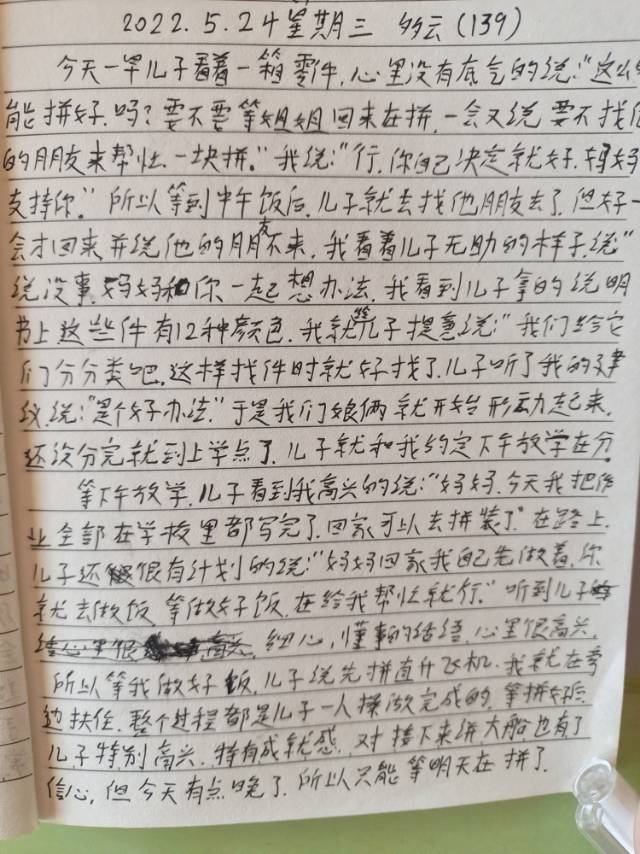 2022.5.24星期三 多云(139)
今天一早儿子看着一箱零件,心里没有底气的说:"这么
能拼好.吗?要不要等姐姐回来在拼,一会又说要不找
的朋友来帮忙一块拼."我说:"行,你自己决定就好.妈妈
支持你."所以等到中午饭后,儿子就去找他朋友去了,但好一
会才回来并说他的朋友不来,我看着儿子无助的样子,说"
说没事妈妈和你一起想办法,我看到儿子拿的说明
书上这些件有12种颜色,我就给儿子提意说:"我们给它
们分分类吧,这样找件时就好找了,儿子听了我的建
议,说:"是个好办法."于是我们娘俩就开始形动起来,
还没分完就到上学点了,儿子就和我约定下午放学在分
等下午放学,儿子看到我高兴的说:"妈妈,今天我把作
业全部在学校里都写完了,回家可以去拼装了"在路上,
儿子还很有计划的说:"妈妈回家我自己先做着,你
就去做饭,等做好饭,在给我帮忙就行."听到儿子
细心,懂事的话语,心里很高兴,
所以等我做好饭,儿子说先拼直升飞机,我就在旁
边扶住,整个过程都是儿子一人操做完成的,等拼好后
儿子特别高兴,特有成就感,对接下来拼大船也有了
信心,但今天有点晚了,所以只能等明天在拼了.